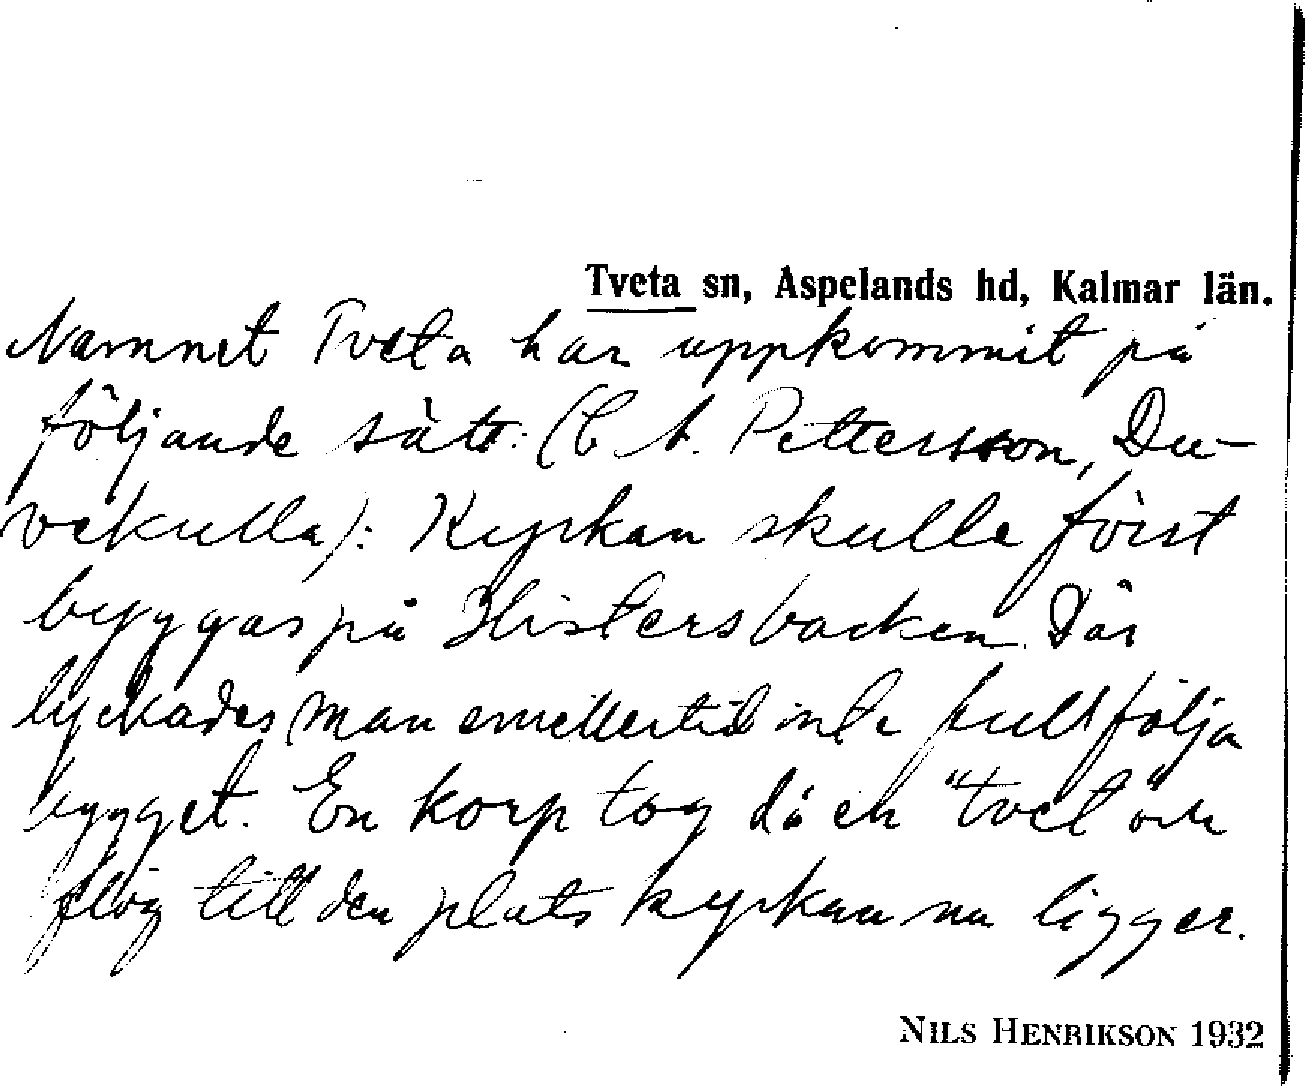 Tveta sn, Aspelands hd, Kalmar län.
Namnet Tveta har uppkommit på
följande sätt: (C A. Pettersson, Du-
vekulla): Kyrkan skulle först
byggas på Histersbacken. Där
lyckades man emellertid inte fullfölja
bygget. En korp tog då en "tvet" och
flög till den plats kyrkan nu ligger.
NILS HENRIKSON 1932